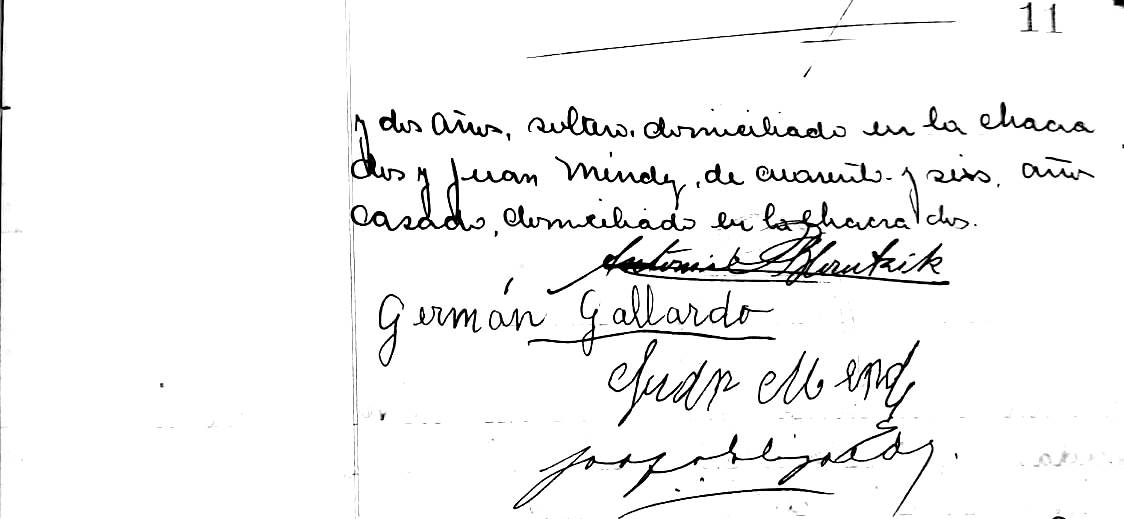 11
y dos años, soltero, domiciliado en la chacra
dos y Juan Mendy, de cuarenta y seis, años
casado, domiciliado en la chacra dos.
Germán Gallardo
Juan Mendy